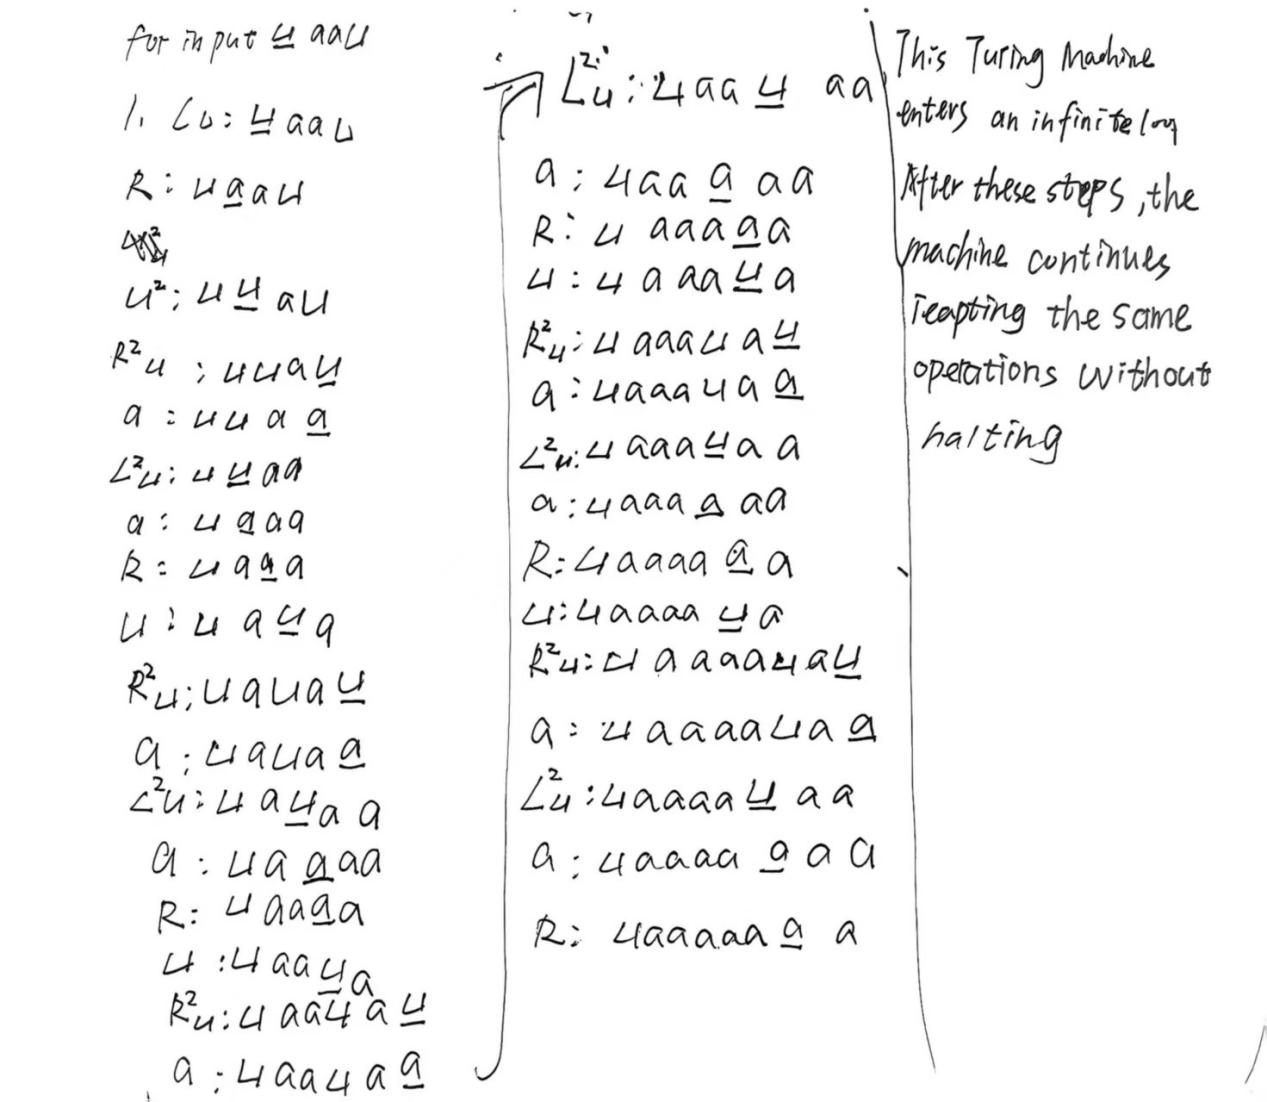 for input ⊔ aa⊔
1. L⊔: ⊔aa⊔
R: ⊔aa⊔
⊔²: ⊔⊔a⊔
R²⊔ : ⊔⊔a⊔
a : ⊔⊔aa
L²⊔: ⊔⊔aa
a : ⊔aaa
R: ⊔aaa
⊔ : ⊔a⊔a
R²⊔: ⊔a⊔a⊔
a : ⊔a⊔aa
L²⊔: ⊔a⊔aa
a : ⊔aaaa
R: ⊔aaaa
⊔ : ⊔aa⊔a
R²⊔: ⊔aa⊔a⊔
a : ⊔aa⊔aa
L²⊔: ⊔aa⊔ aa
a : ⊔aaaaa
R: ⊔aaaaa
⊔ : ⊔aaa⊔a
R²⊔: ⊔aaa⊔a⊔
a : ⊔aaa⊔aa
L²⊔: ⊔aaa⊔aa
a : ⊔aaaaaa
R: ⊔aaaaaa
⊔: ⊔aaaa⊔a
R²⊔: ⊔aaaa⊔a⊔
a : ⊔aaaa⊔aa
L²⊔: ⊔aaaa⊔aa
a : ⊔aaaaaaa
R: ⊔aaaaaaa
This Turing Machine
enters an infinite loop
After these steps, the
machine continues
reapting the same
operations without
halting